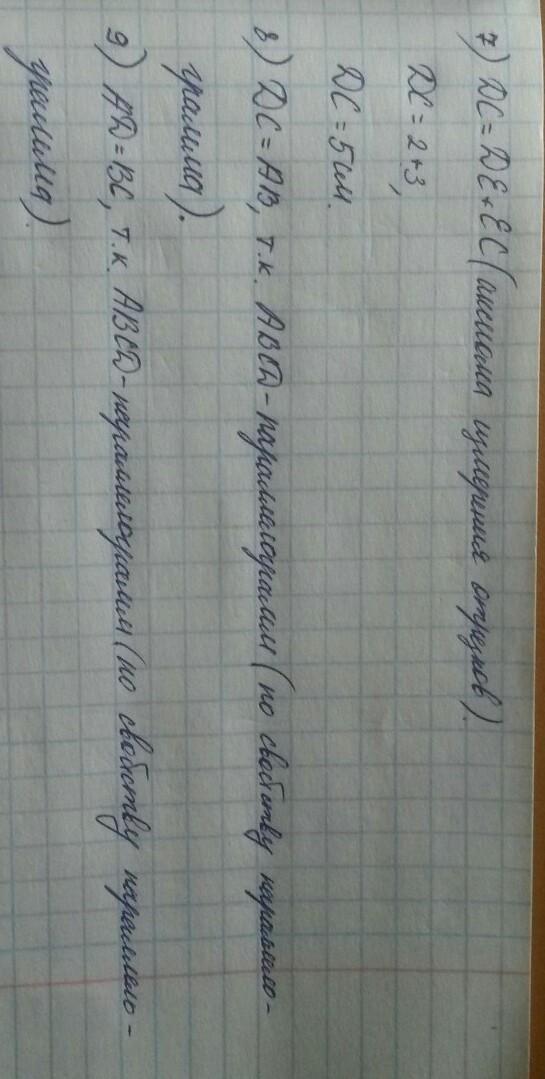 7) DC = DE + EC (аксиома измерения отрезков).
DC = 2+3,
DC = 5см.
8) DC = AB, т.к. ABCD - параллелограмм (по свойству параллело-
грамма).
9) AD = BC, т.к. ABCD - параллелограмм (по свойству параллело-
грамма).